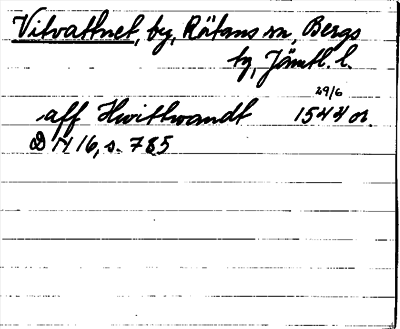 Vitvattnet, by, Rätans sn, Bergs
tg, Jämtl. l.
29/6
aff Hwittwandt, 1544 or.
DN 16, s. 785